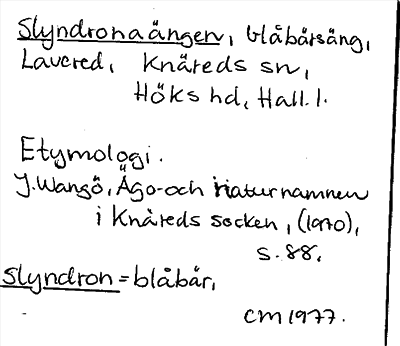 Slyndronaängen, blåbärsäng,
Lavered, Knäreds sn,
Höks hd, Hall. l.
Etymologi.
J. Wangö, Ägo- och naturnamnen
i Knäreds socken, (1970),
s. 88.
Slyndron = blåbär,
CM 1977.